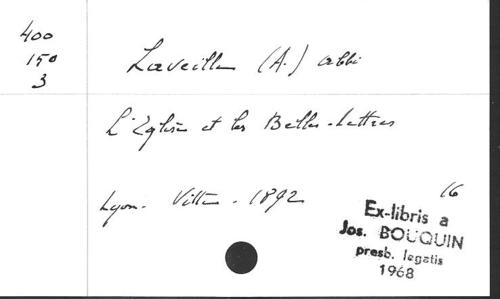 400
150
3
Laveille (A.) abbé
L'Eglise et les Belles-Lettres
Lyon - Vitte - 1892
16
Ex-libris a
Jos. BOUQUIN
presb. legatis
1968